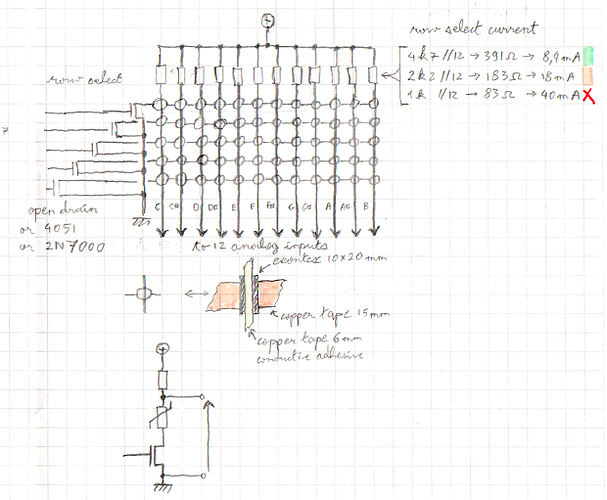 row select current
4k7 //12 → 391Ω → 8,9mA
2k2 //12 → 183Ω → 18mA
1k //12 → 83Ω → 40mA X
row select
C C# D D# E F F# G G# A A# B
open drain
or 4051
or 2N7000
to 12 analog inputs
eeontex 10x20 mm
copper tape 15mm
copper tape 6mm
conductive adhesive